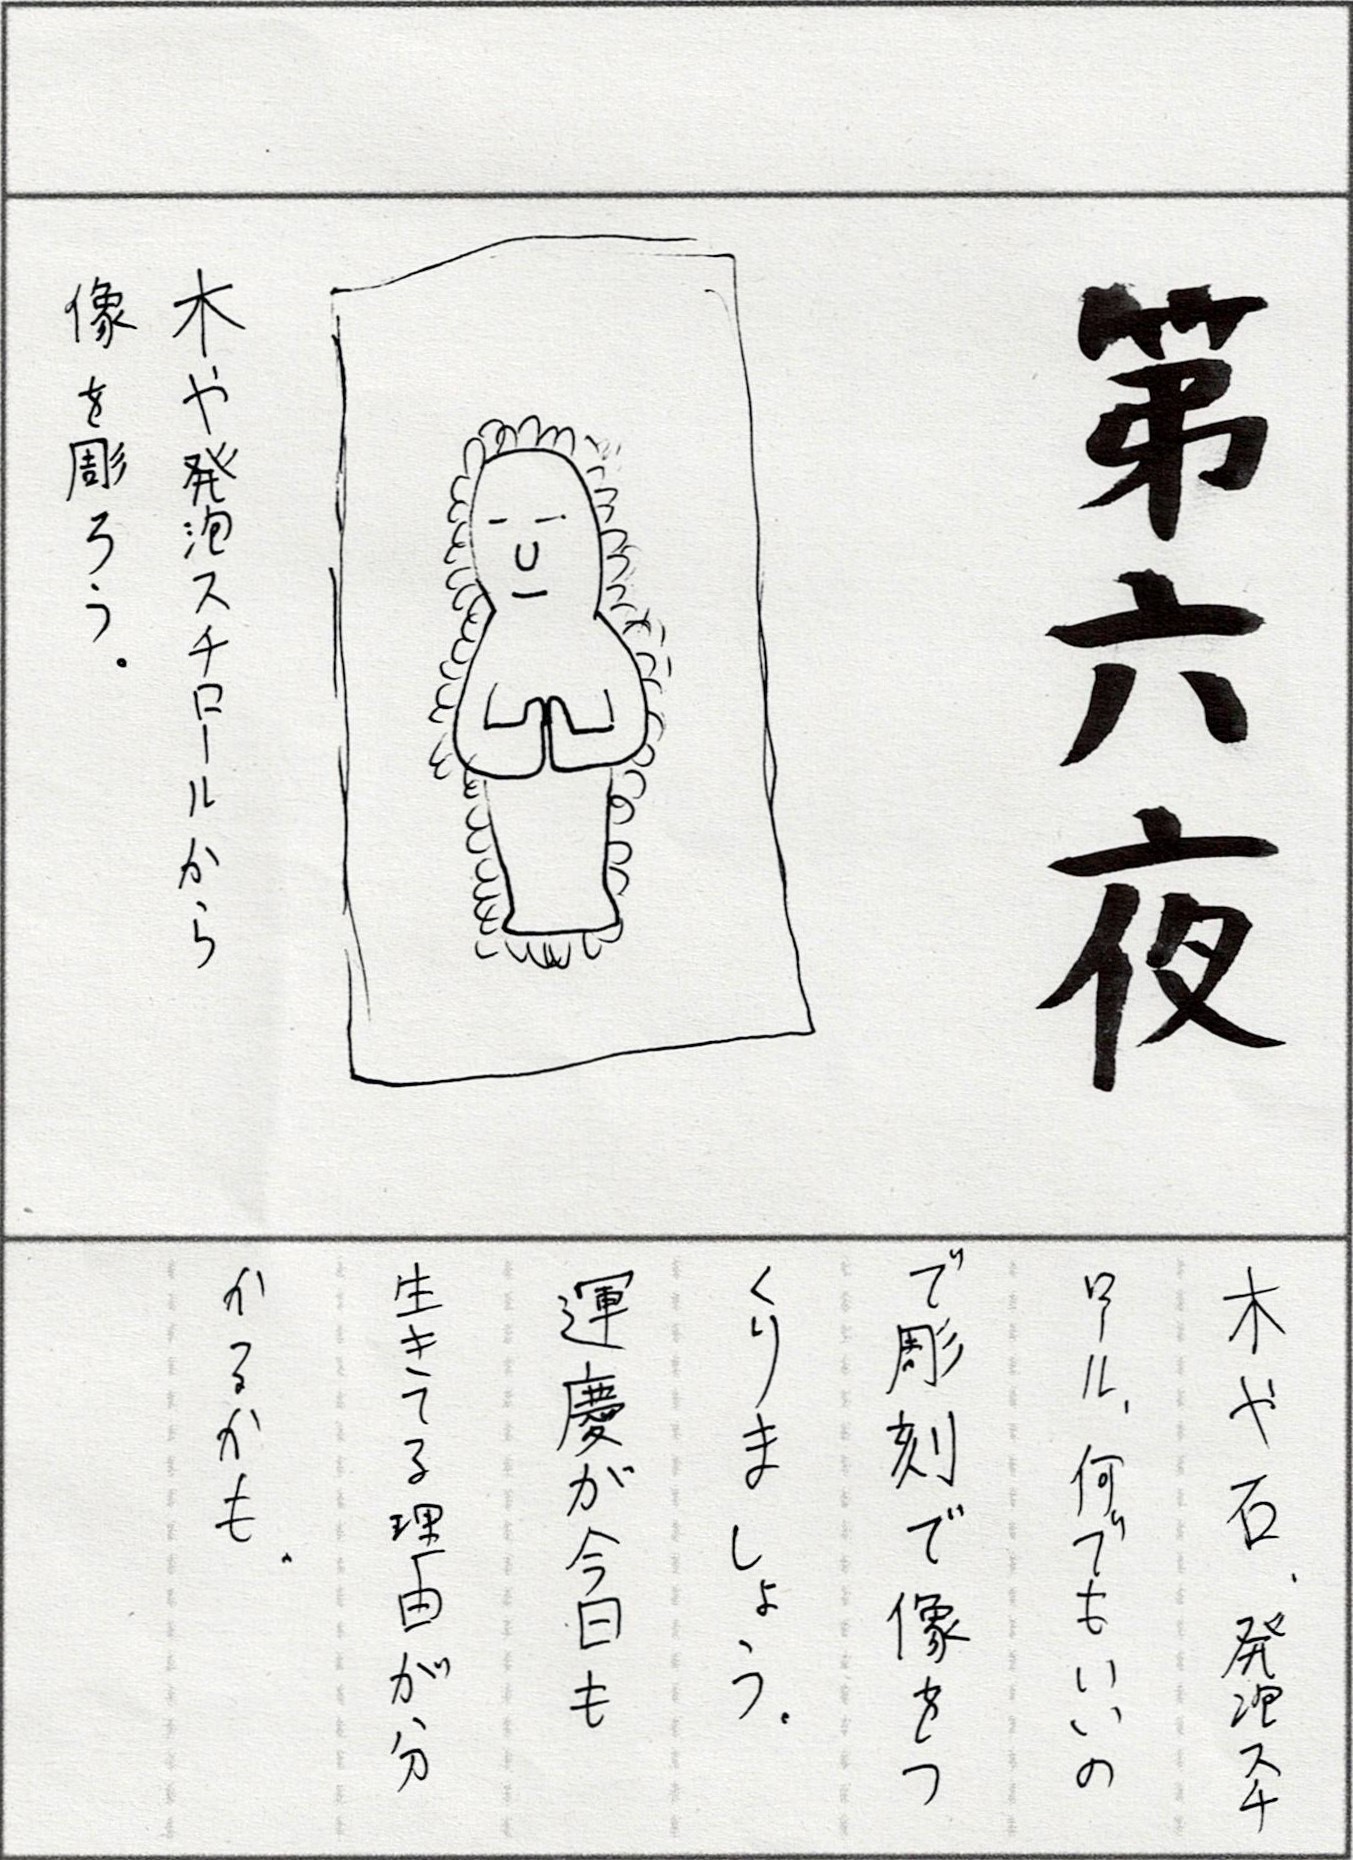 第六夜
木や発泡スチロールから
像を彫ろう.
木や石、発泡スチ
ロール、何でもいいの
で彫刻で像をつ
くりましょう.
運慶が今日も
生きてる理由が分
かるかも.